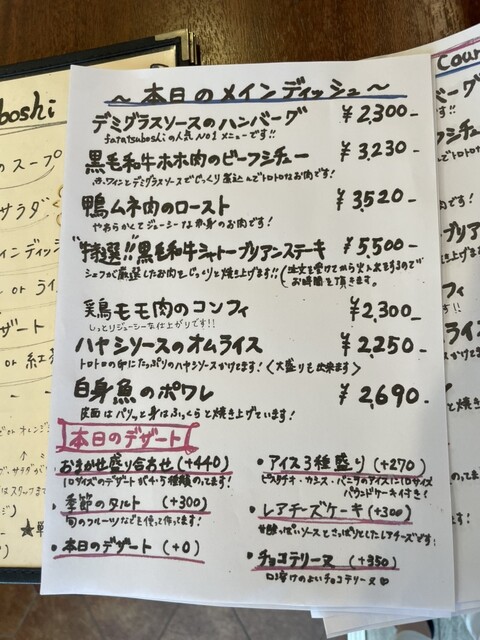 ～本日のメインディッシュ～
デミグラスソースのハンバーグ ¥2,300-
fatatsuboshiの人気No1メニューです!!
黒毛和牛ホホ肉のビーフシチュー ¥3,230-
赤ワインとデミグラスソースでじっくり煮込んでトロトロなお肉です!
鴨ムネ肉のロースト ¥3,520-
やわらかくてジューシーな赤身のお肉です!
"特選!!"黒毛和牛シャトーブリアンステーキ ¥5,500-
シェフが厳選したお肉をじっくりと焼き上げます!!(注文を受けてから火入れをするので
お時間を頂きます。
鶏モモ肉のコンフィ ¥2,300-
しっとりジューシーな仕上がりです!!
ハヤシソースのオムライス ¥2,250-
トロトロの卵にたっぷりのハヤシソースかけます!〈大盛りも出来ます〉
白身魚のポワレ ¥2,690-
皮面はパリッと身はふっくらと焼き上げています!
本日のデザート
・おまかせ盛り合わせ(+440)
1口サイズのデザートが4~5種類のってます!
・季節のタルト (+300)
旬のフルーツなどを使って作ってます!
・本日のデザート (+0)
・アイス3種盛り(+270)
ピスタチオ・カシス・バニラのアイスに1口サイズ
パウンドケーキ付き!
・レアチーズケーキ(+300)
甘酸っぱいソースとさっぱりとしたレアチーズです!
・チョコテリーヌ (+350)
口溶けのよいチョコテリーヌ♡
boshi
のスープ
サラダ
インディッシ
or ライ
ザート
or 紅
Cour